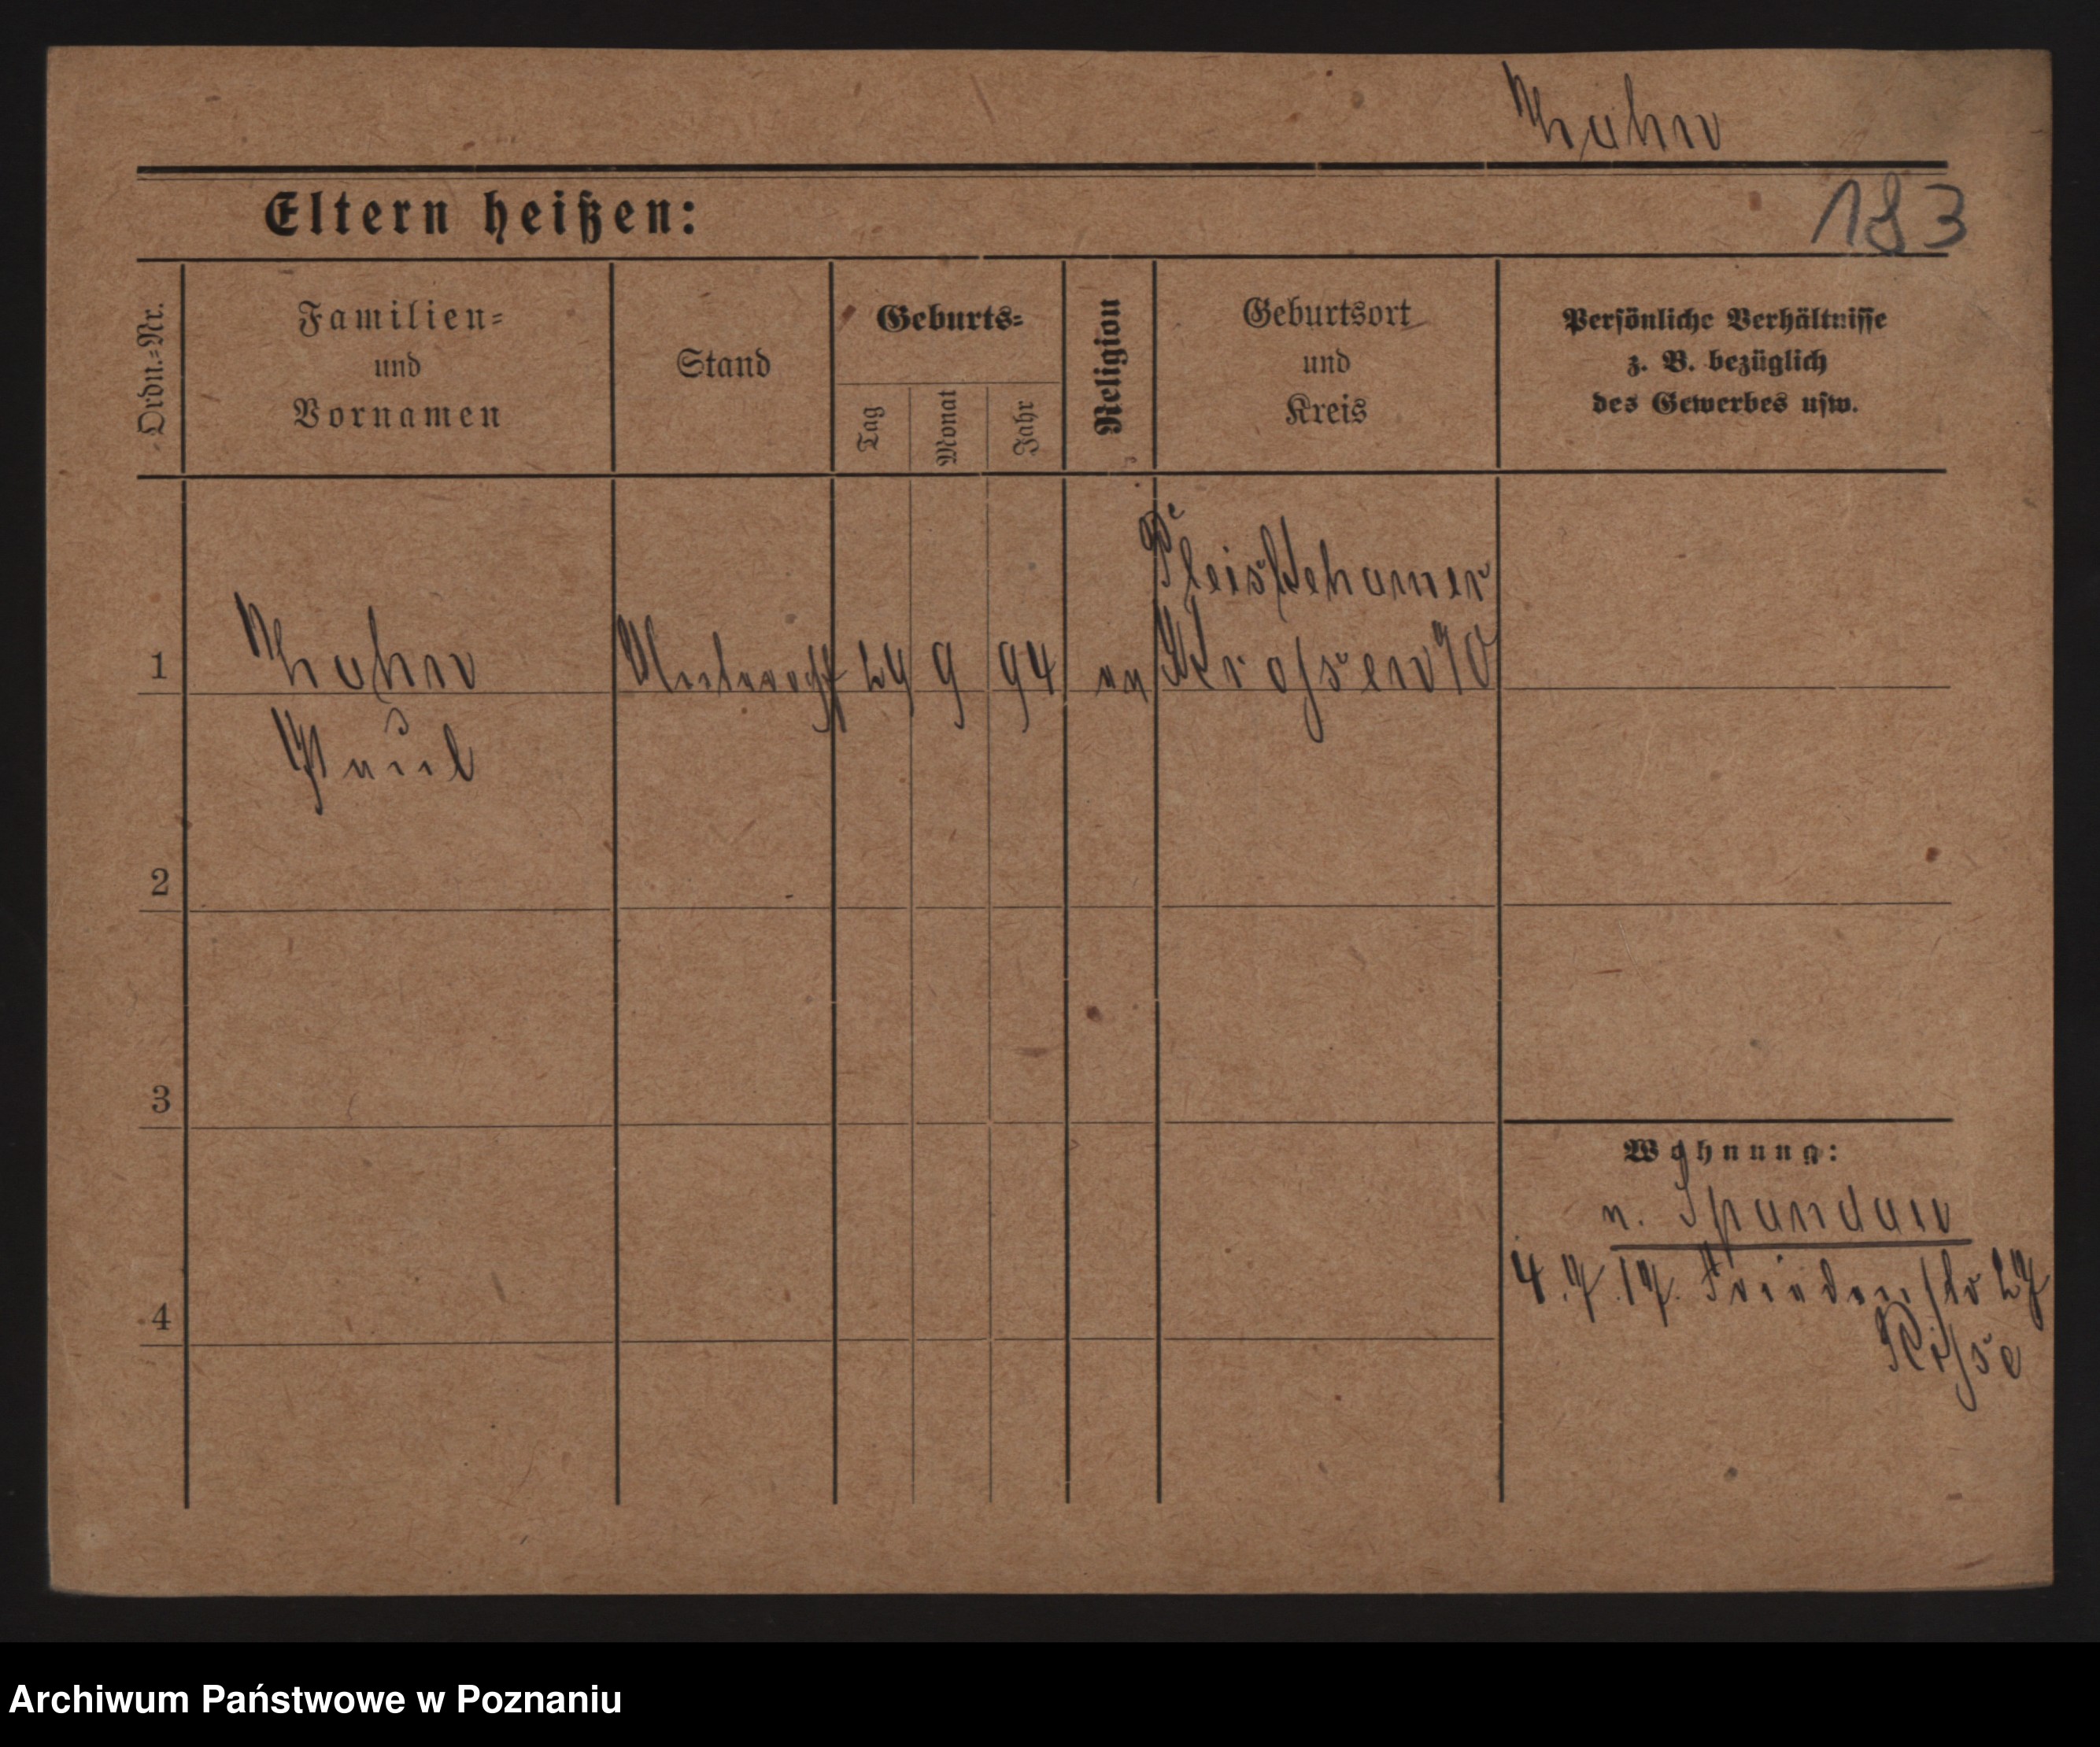 Zuhn
Eltern heißen:
183
Ordn.=Nr.
Familien=
und
Vornamen
Stand
Geburts=
Tag
Monat
Jahr
Religion
Geburtsort
und
Kreis
Persönliche Verhältnisse
z. B. bezüglich
des Gewerbes usw.
1
Paul
24
9
94
ev
2
3
4
Wohnung:
n. Spandau
4.7.17.
27
Archiwum Państwowe w Poznaniu